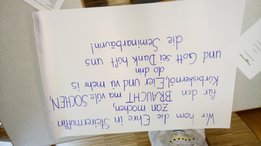 Wir hom die Ehre in Steirermuffin
zan mochen,
für den BRAUCHT ma vüle SOCHEN,
Kürbiskernöl, Eier und vü mehr is
do drin
und Gott sei Dank hüft uns
die Seminarbäurin!